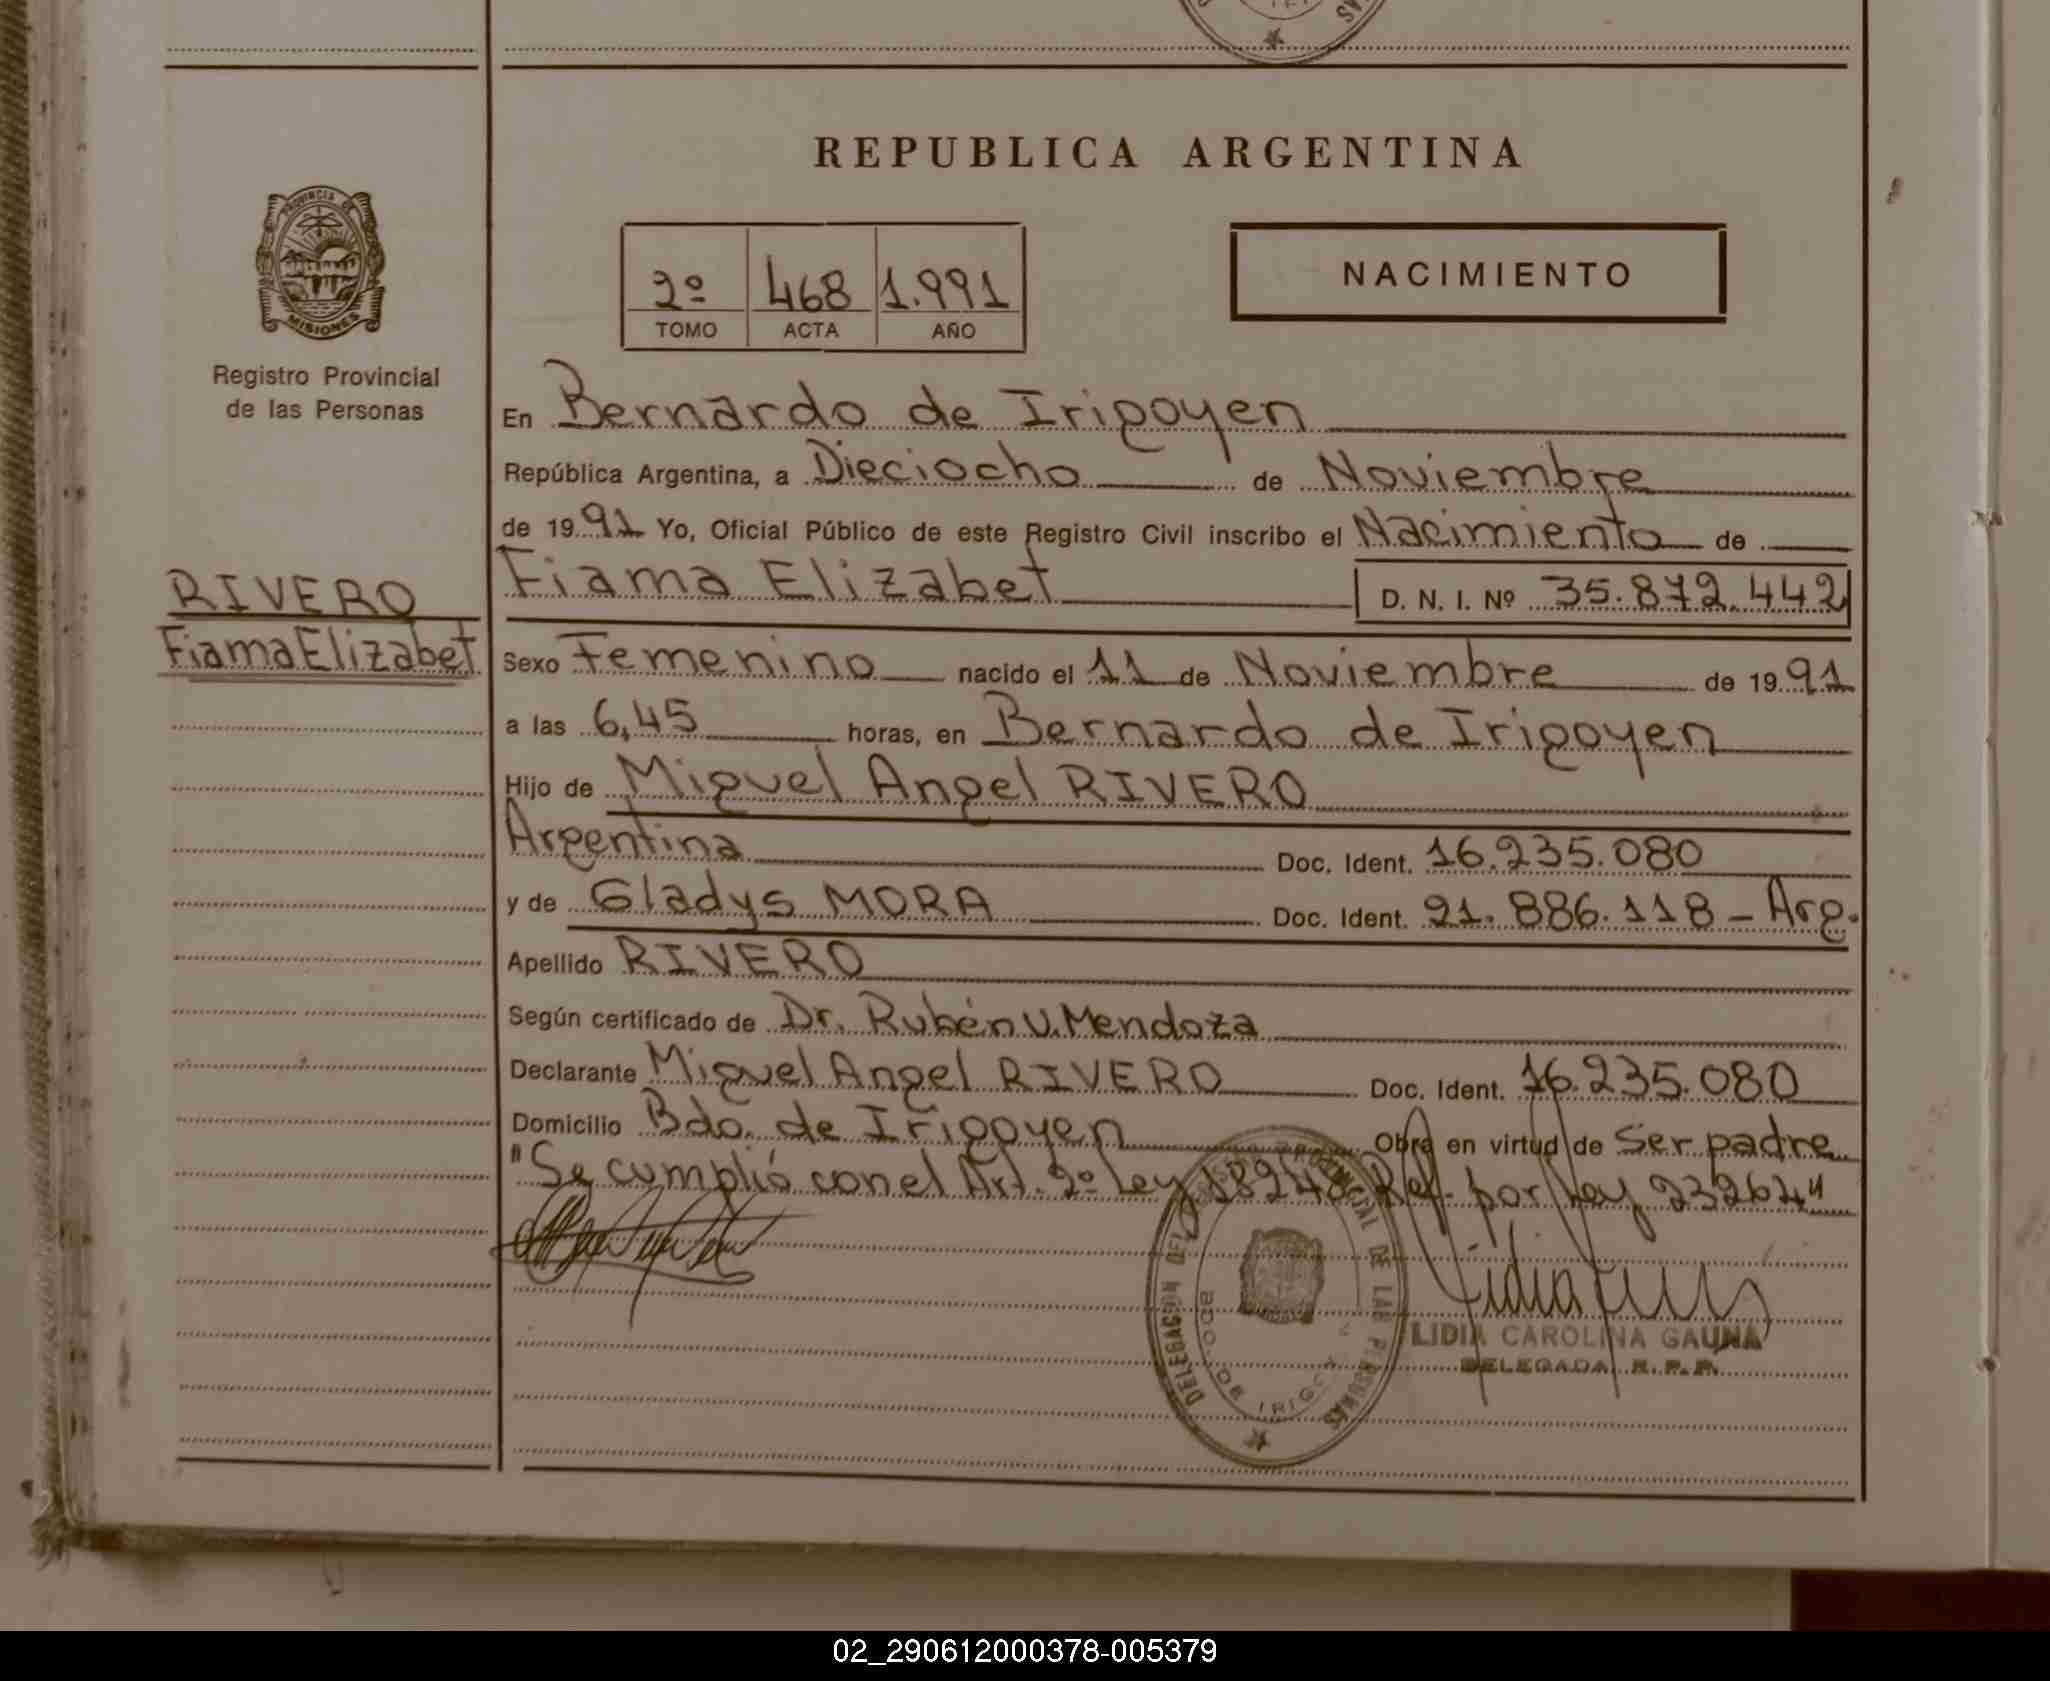 REPUBLICA ARGENTINA
PROVINCIA DE
MISIONES
Registro Provincial
de las Personas
2º 468 1.991
TOMO ACTA AÑO
NACIMIENTO
En Bernardo de Irigoyen
República Argentina, a Dieciocho de Noviembre
de 1991 Yo, Oficial Público de este Registro Civil inscribo el Nacimiento de
RIVERO
Fiama Elizabet
Fiama Elizabet D. N. I. Nº 35.872.442
Sexo Femenino nacido el 11 de Noviembre de 1991
a las 6,45 horas, en Bernardo de Irigoyen
Hijo de Miguel Angel RIVERO
Argentina Doc. Ident. 16.235.080
y de Gladys MORA Doc. Ident. 21.886.118 - Arg.
Apellido RIVERO
Según certificado de Dr. Rubén V. Mendoza
Declarante Miguel Angel RIVERO Doc. Ident. 16.235.080
Domicilio Bdo. de Irigoyen Obra en virtud de Ser padre
"Se cumplió con el Art. 2º Ley 18248 Ref. por Ley 23264"
DELEGACION DEL REGISTRO PROVINCIAL DE LAS PERSONAS
BDO. DE IRIGOYEN
LIDIA CAROLINA GAUNA
DELEGADA R.P.P.
02_290612000378-005379